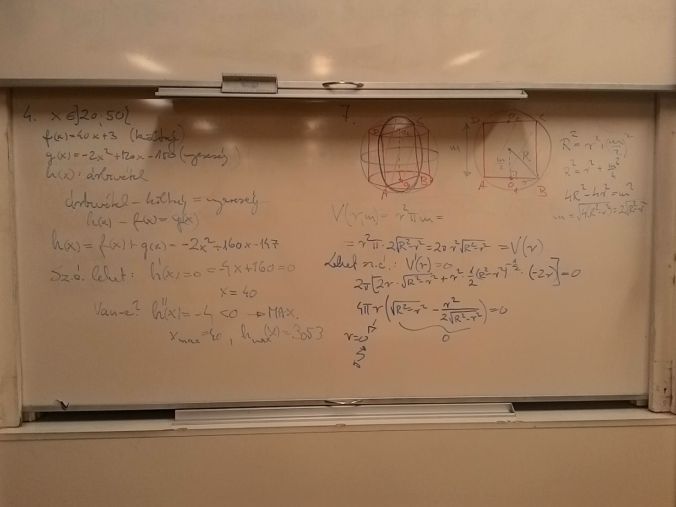 4. x∈]20;50[
f(x)=40x+3 (költség)
g(x)=-2x²+120x-150 (nyereség)
h(x): árbevétel
árbevétel - költség = nyereség
h(x) - f(x) = g(x)
h(x) = f(x)+g(x) = -2x²+160x-147
Szé. lehet: h'(x)=0 = -4x+160=0
x=40
Van-e? h''(x)=-4<0 → MAX.
x max=40, h max(x)=3053
7.
D C
m
R
m/2
A r B
R²=r²+(m/2)²
R²=r²+m²/4
4R²-4r²=m²
m=√4R²-4r²=2√R²-r²
V(r,m)=r²πm=
=r²π·2√R²-r²=2πr²√R²-r²=V(r)
Lehet sz.é.: V'(r)=0
2π[2r·√R²-r²+r²·1/2(R²-r²)^-1/2·(-2r)]=0
4πr(√R²-r² - r²/2√R²-r²)=0
r=0 0